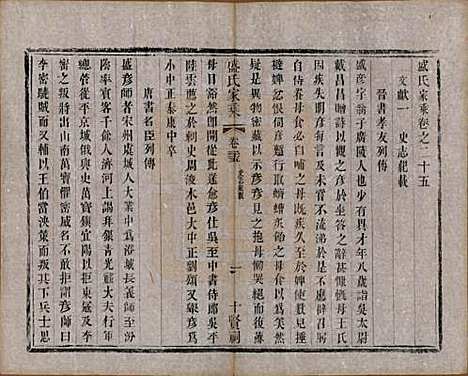 盛氏家乘卷之二十五
文獻一　史志紀載
晉書孝友列傳
盛彥字翁子廣陵人也少有異才年八歲詣吳太尉
戴昌昌贈詩以觀之彥於坐答之辭甚慷慨母王氏
因疾失明彥每言及未嘗不流涕於是不應辟召躬
自侍養母食必自哺之母疾久至於婢使數見捶
撻婢忿恨伺彥暫行取蠐螬炙飴之母食以為美然
疑是異物密藏以示彥彥見之抱母慟哭絕而復蘇
盛氏家乘
卷二十五
一
十賢祠
母目豁然即開從此遂愈彥仕吳至中書侍郎吳平
陸雲薦之於刺史周浚本邑大中正劉頌又舉彥為
小中正泰康中卒
唐書名臣列傳
盛彥師者宋州虞城人大業中為澄城長義師至汾
陰率賓客千餘人濟河上謁拜銀青光祿大夫行軍
總管從平京城俄與史萬寶鎮宜陽以拒東寇及李
密之叛將出山南萬寶懼密威名不敢拒謂彥師曰
李密驍賊而又輔以王伯當決策而叛其下兵士思